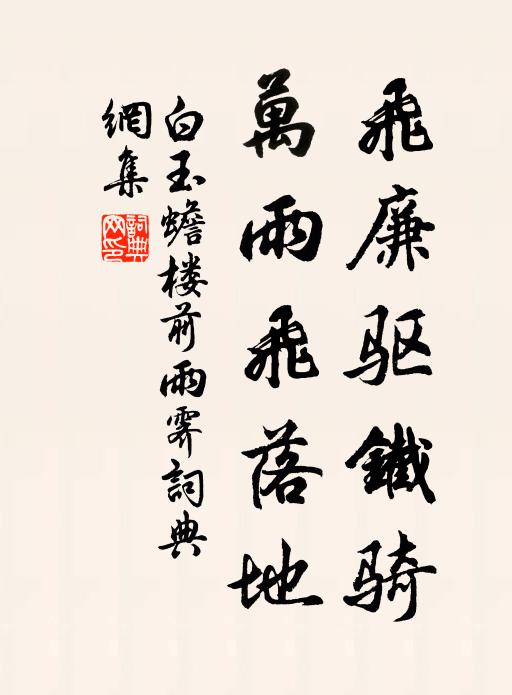 飛廉驱鐵骑
萬雨飛落地
白玉蟾楼前雨霁詞典
網集
詞典
网印